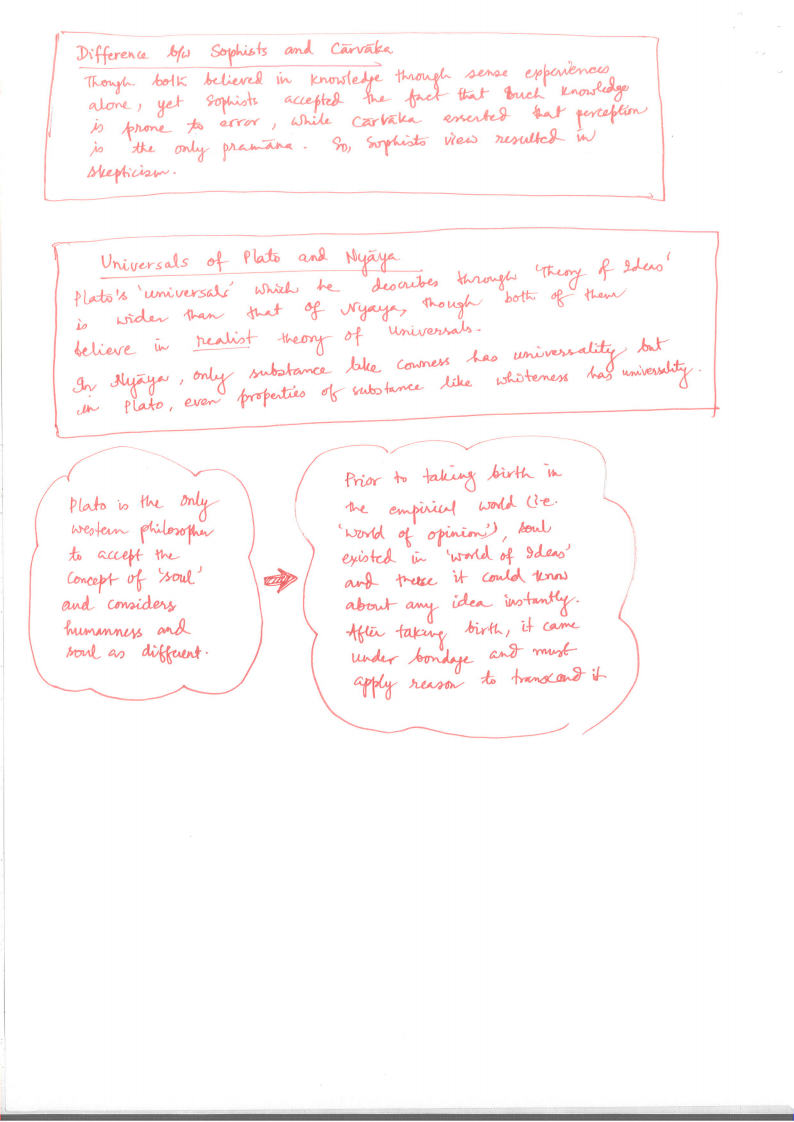 Difference b/w Sophists and Cārvāka
Though both believed in knowledge through sense experiences
alone, yet Sophists accepted the fact that such knowledge
is prone to error, while Cārvāka asserted that perception
is the only pramāna. So, Sophists view resulted in
skepticism.
Universals of Plato and Nyāya
Plato's 'universals' which he describes through 'Theory of Ideas'
is wider than that of Nyaya, though both of them
believe in realist theory of Universals.
In Nyāya, only substance like cowness has universality but
in Plato, even properties of substance like whiteness has universality.
Plato is the only
western philosopher
to accept the
concept of 'soul'
and considers
humanness and
soul as different.
Prior to taking birth in
the empirical world (i.e.
'world of opinion'), soul
existed in 'world of Ideas'
and there it could know
about any idea instantly.
After taking birth, it came
under bondage and must
apply reason to transcend it